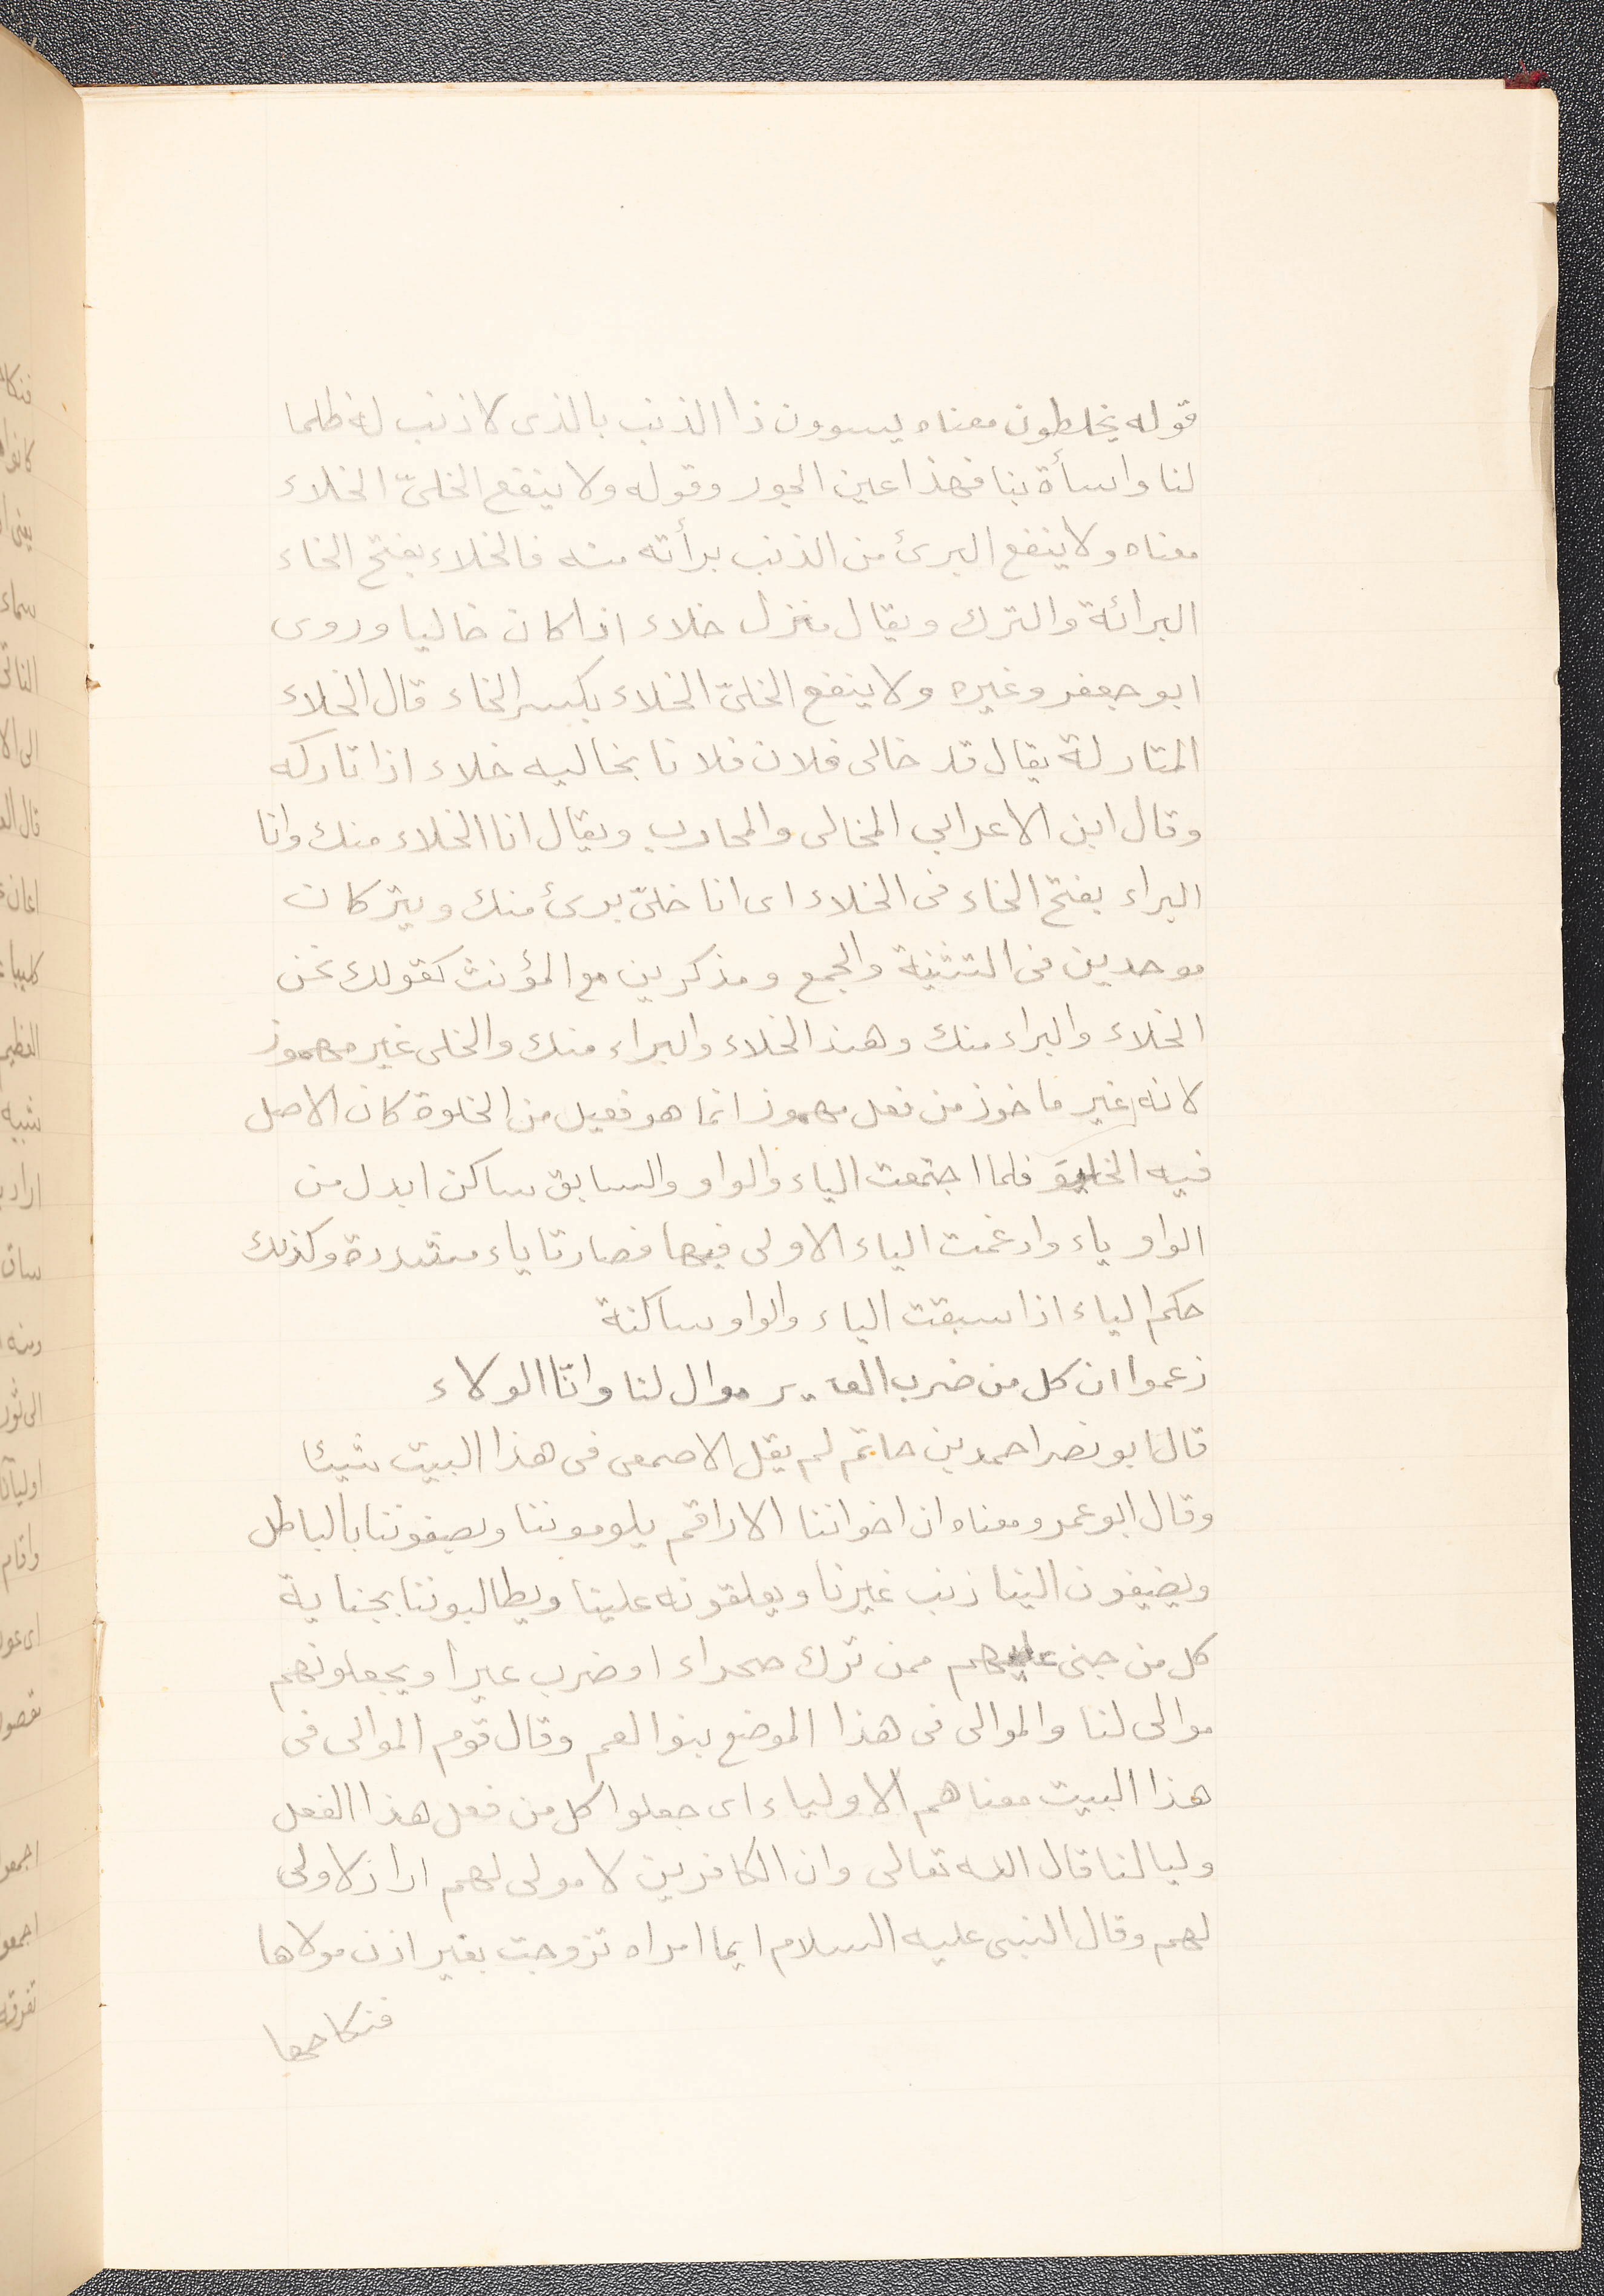 قوله يخلطون معناه يسوون ذا الذنب بالذى لا ذنب له ظلما
لنا واسأة بنا فهذا عين الجور وقوله ولا ينفع الخلىّ الخلاء
معناه ولا ينفع البرئ من الذنب برأته منه فالخلاء بفتح الخاء
البرائة والترك ويقال منزل خلاء اذا كان خاليا وروى
ابو جعفر وغيره ولا ينفع الخلىّ الخلاء بكسر الخاء قال الخلاء
المتاركة يقال قد خالى فلان فلانا يخاليه خلاء اذا تاركه
وقال ابن الاعرابي المخالى والمحارب ويقال انا الخلاء منك وانا
البراء بفتح الخاء فى الخلاء اى انا خلىّ برئ منك ويتركان
موحدين فى التثنية والجمع ومذكرين مع المؤنث كقولك نحن
الخلاء والبراء منك وهند الخلاء والبراء منك والخلى غير مهموز
لانه غير ماخوذ من فعل مهموز انما هو فعيل من الخلوة كان الاصل
فيه الخليو فلما اجتمعت الياء والواو والسابق ساكن ابدل من
الواو ياء وادغمت الياء الاولى فيها فصارتا ياء مشددة وكذلك
حكم الياء اذا سبقت الياء والواو ساكنة
زعموا ان كل من ضرب العير موال لنا وانّا الولاء
قال ابو نصر احمد بن حاتم لم يقل الاصمعى فى هذا البيت شيئا
وقال ابو عمرو معناه ان اخواننا الاراقم يلوموننا ويصفوننا بالباطل
ويضيفون الينا ذنب غيرنا ويعلقونه علينا ويطالبوننا بجناية
كل من جنى عليهم ممن ترك صحراء او ضرب عيرا ويجعلونهم
موالى لنا والموالى فى هذا الموضع بنوا لعم وقال قوم الموالى فى
هذا البيت معناهم الاولياء اى جعلوا كل من فعل هذا الفعل
وليا لنا قال الله تعالى وان الكافرين لا مولى لهم اراد لا ولى
لهم وقال النبى عليه السلام ايما امراه تزوجت بغير اذن مولاها
فنكاحها